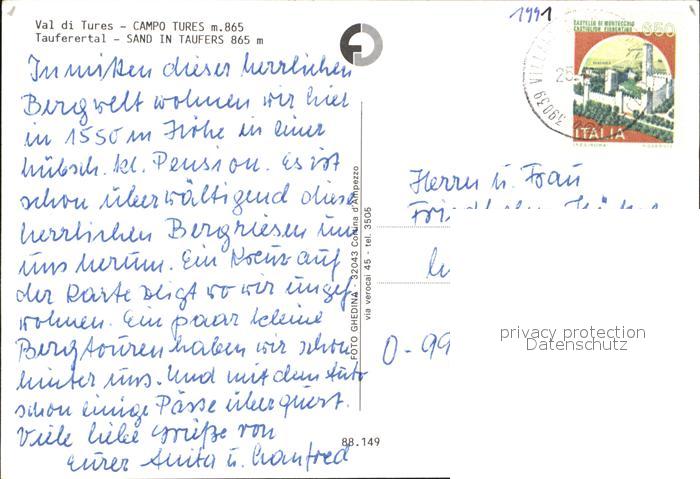 1991
CASTELLO DI MONTECCHIO
CASTIGLION FIORENTINO 650
Val di Tures – CAMPO TURES m.865
Tauferertal – SAND IN TAUFERS 865 m
39039
25
ITALIA
In mitten dieser herrlichen
Bergwelt wohnen wir hier
in 1550 m Höhe in einer
hübsch. kl. Pension. Es ist
schon überwältigend diese
herrlichen Bergriesen um
uns herum. Ein Kreuz auf
der Karte zeigt wo wir ungef.
wohnen. Ein paar kleine
Bergtouren haben wir schon
hinter uns. Und mit dem Auto
schon einige Pässe überquert.
Viele liebe Grüße von
Eurer Anita u. Manfred
FOTO GHEDINA - 32043 Cortina d'Ampezzo
via verocai 45 - tel. 3505
Herrn u. Frau
O-99
privacy protection
Datenschutz
88.149